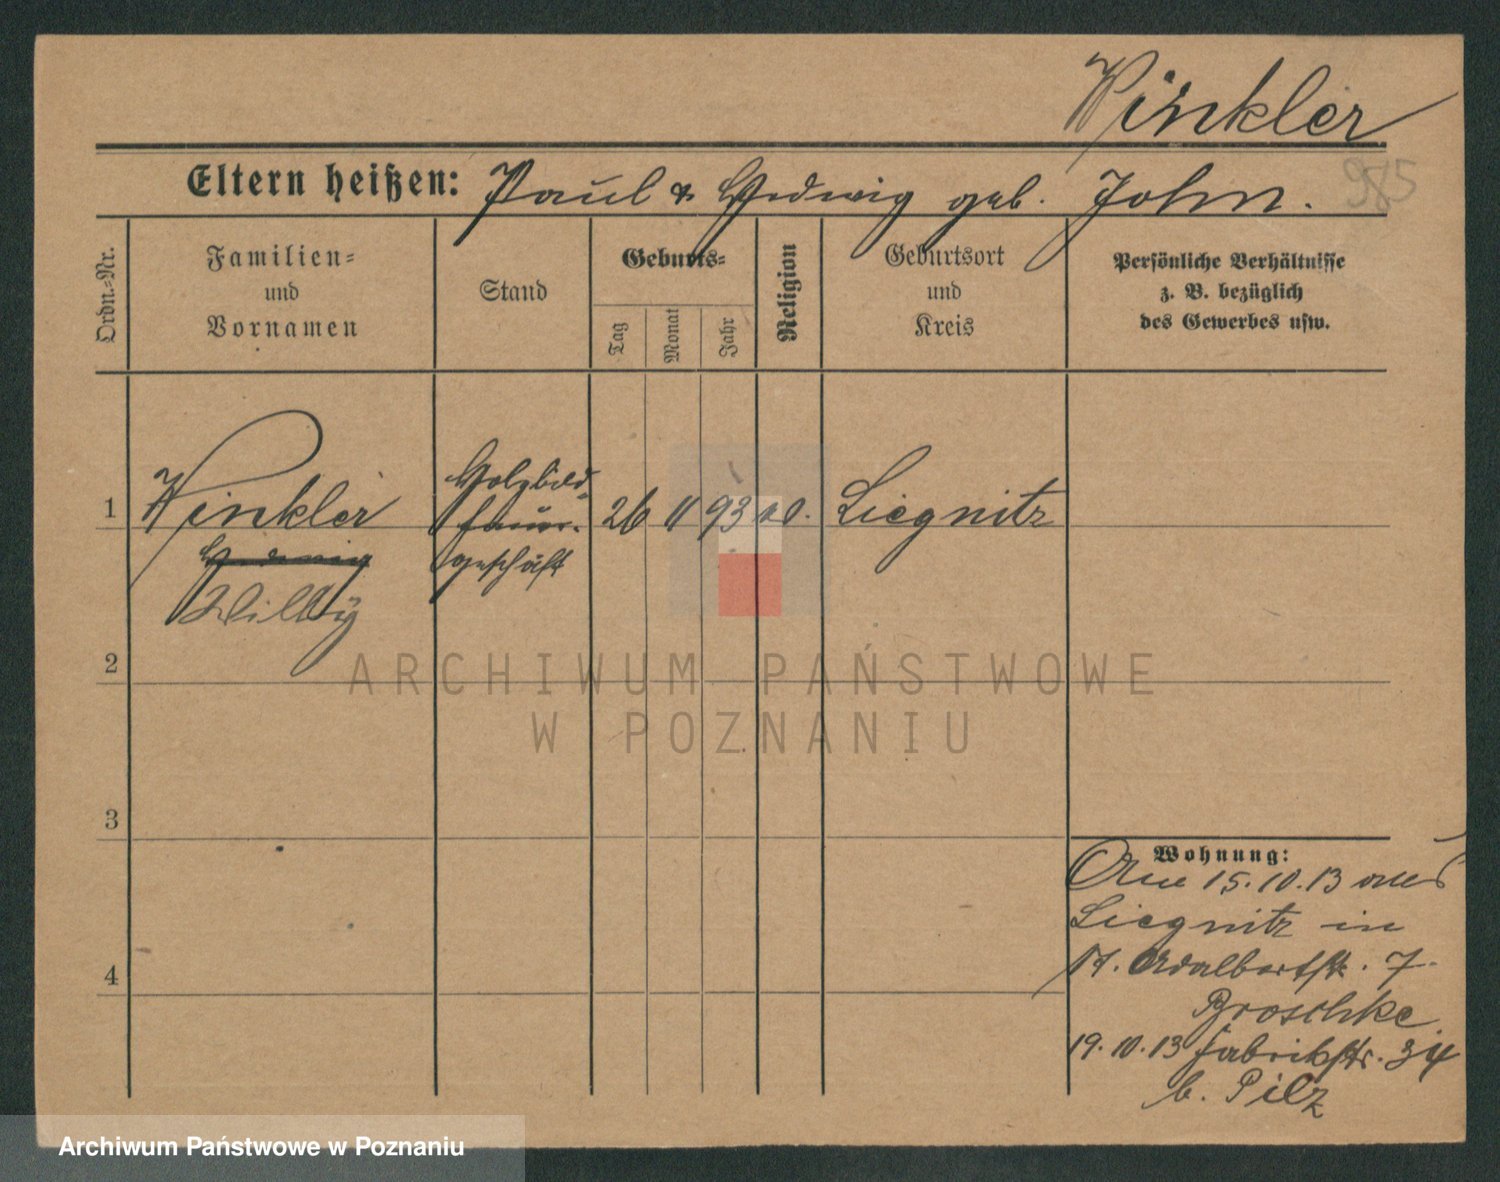 Winkler
985
Eltern heißen: Paul & Hedwig geb. John.
Ordn.-Nr.
Familien-
und
Vornamen
Stand
Geburts-
Tag
Monat
Jahr
Religion
Geburtsort
und
Kreis
Persönliche Verhältnisse
z. B. bezüglich
des Gewerbes usw.
1 Winkler
Hedwig
Willy
Holzbild-
hauer-
geschäft
26 11 93
Liegnitz
2
3
4
ARCHIWUM PAŃSTWOWE
W POZNANIU
Wohnung:
Am 15.10.13 aus
Liegnitz in
Adalbertstr. 7
Broschke
19.10.13 Fabrikstr. 34
b. Pilz
Archiwum Państwowe w Poznaniu